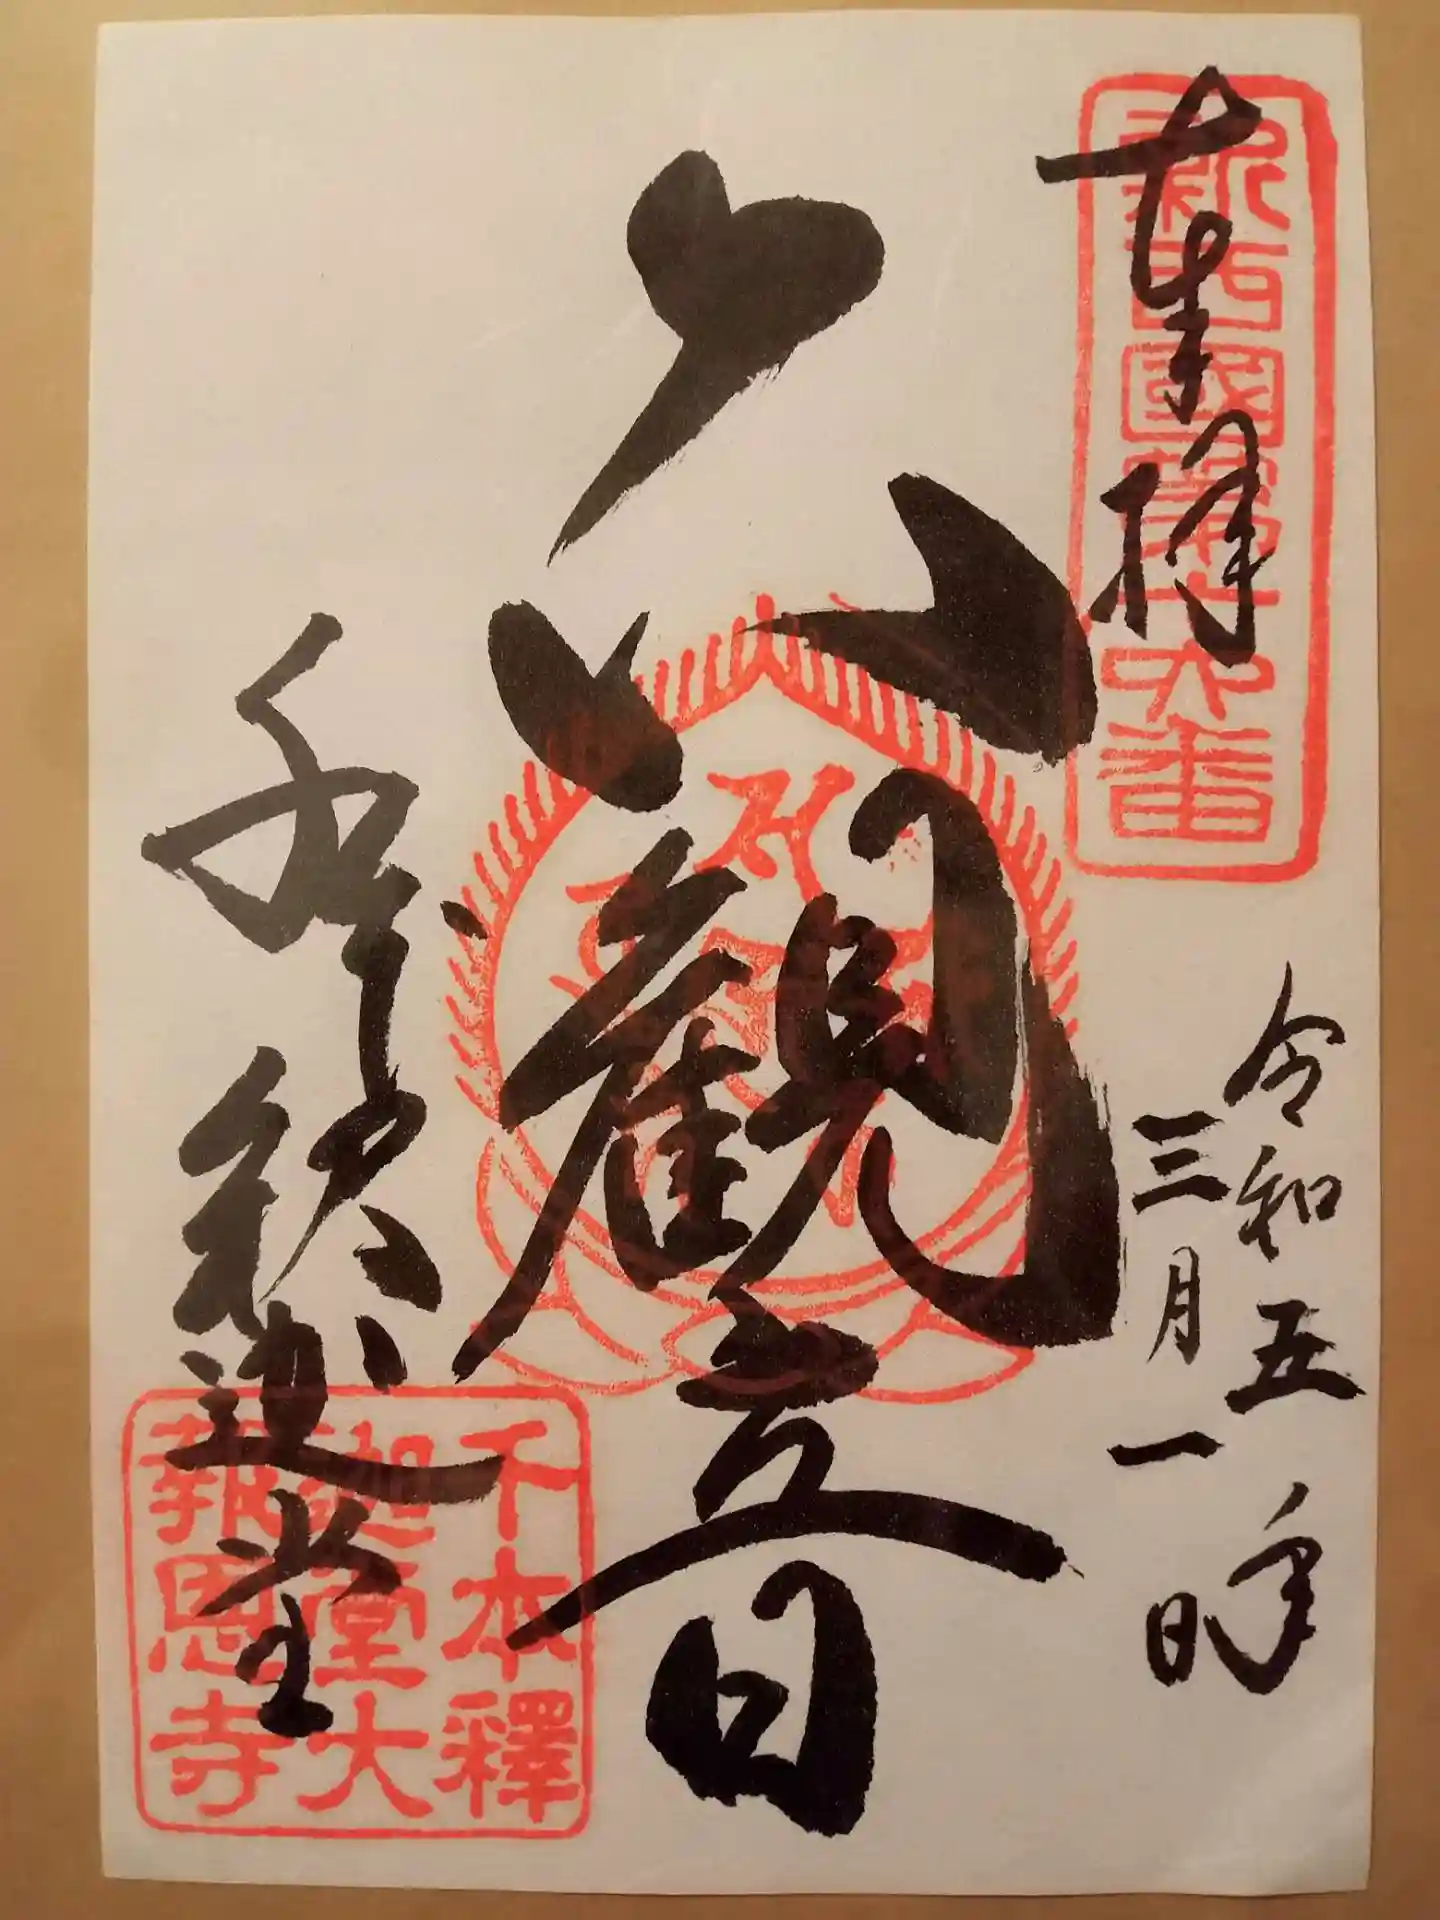 新西國第十六番
奉拝
令和五年
三月一日
六観音
千本釈迦堂
千本釋
迦堂大
報恩寺